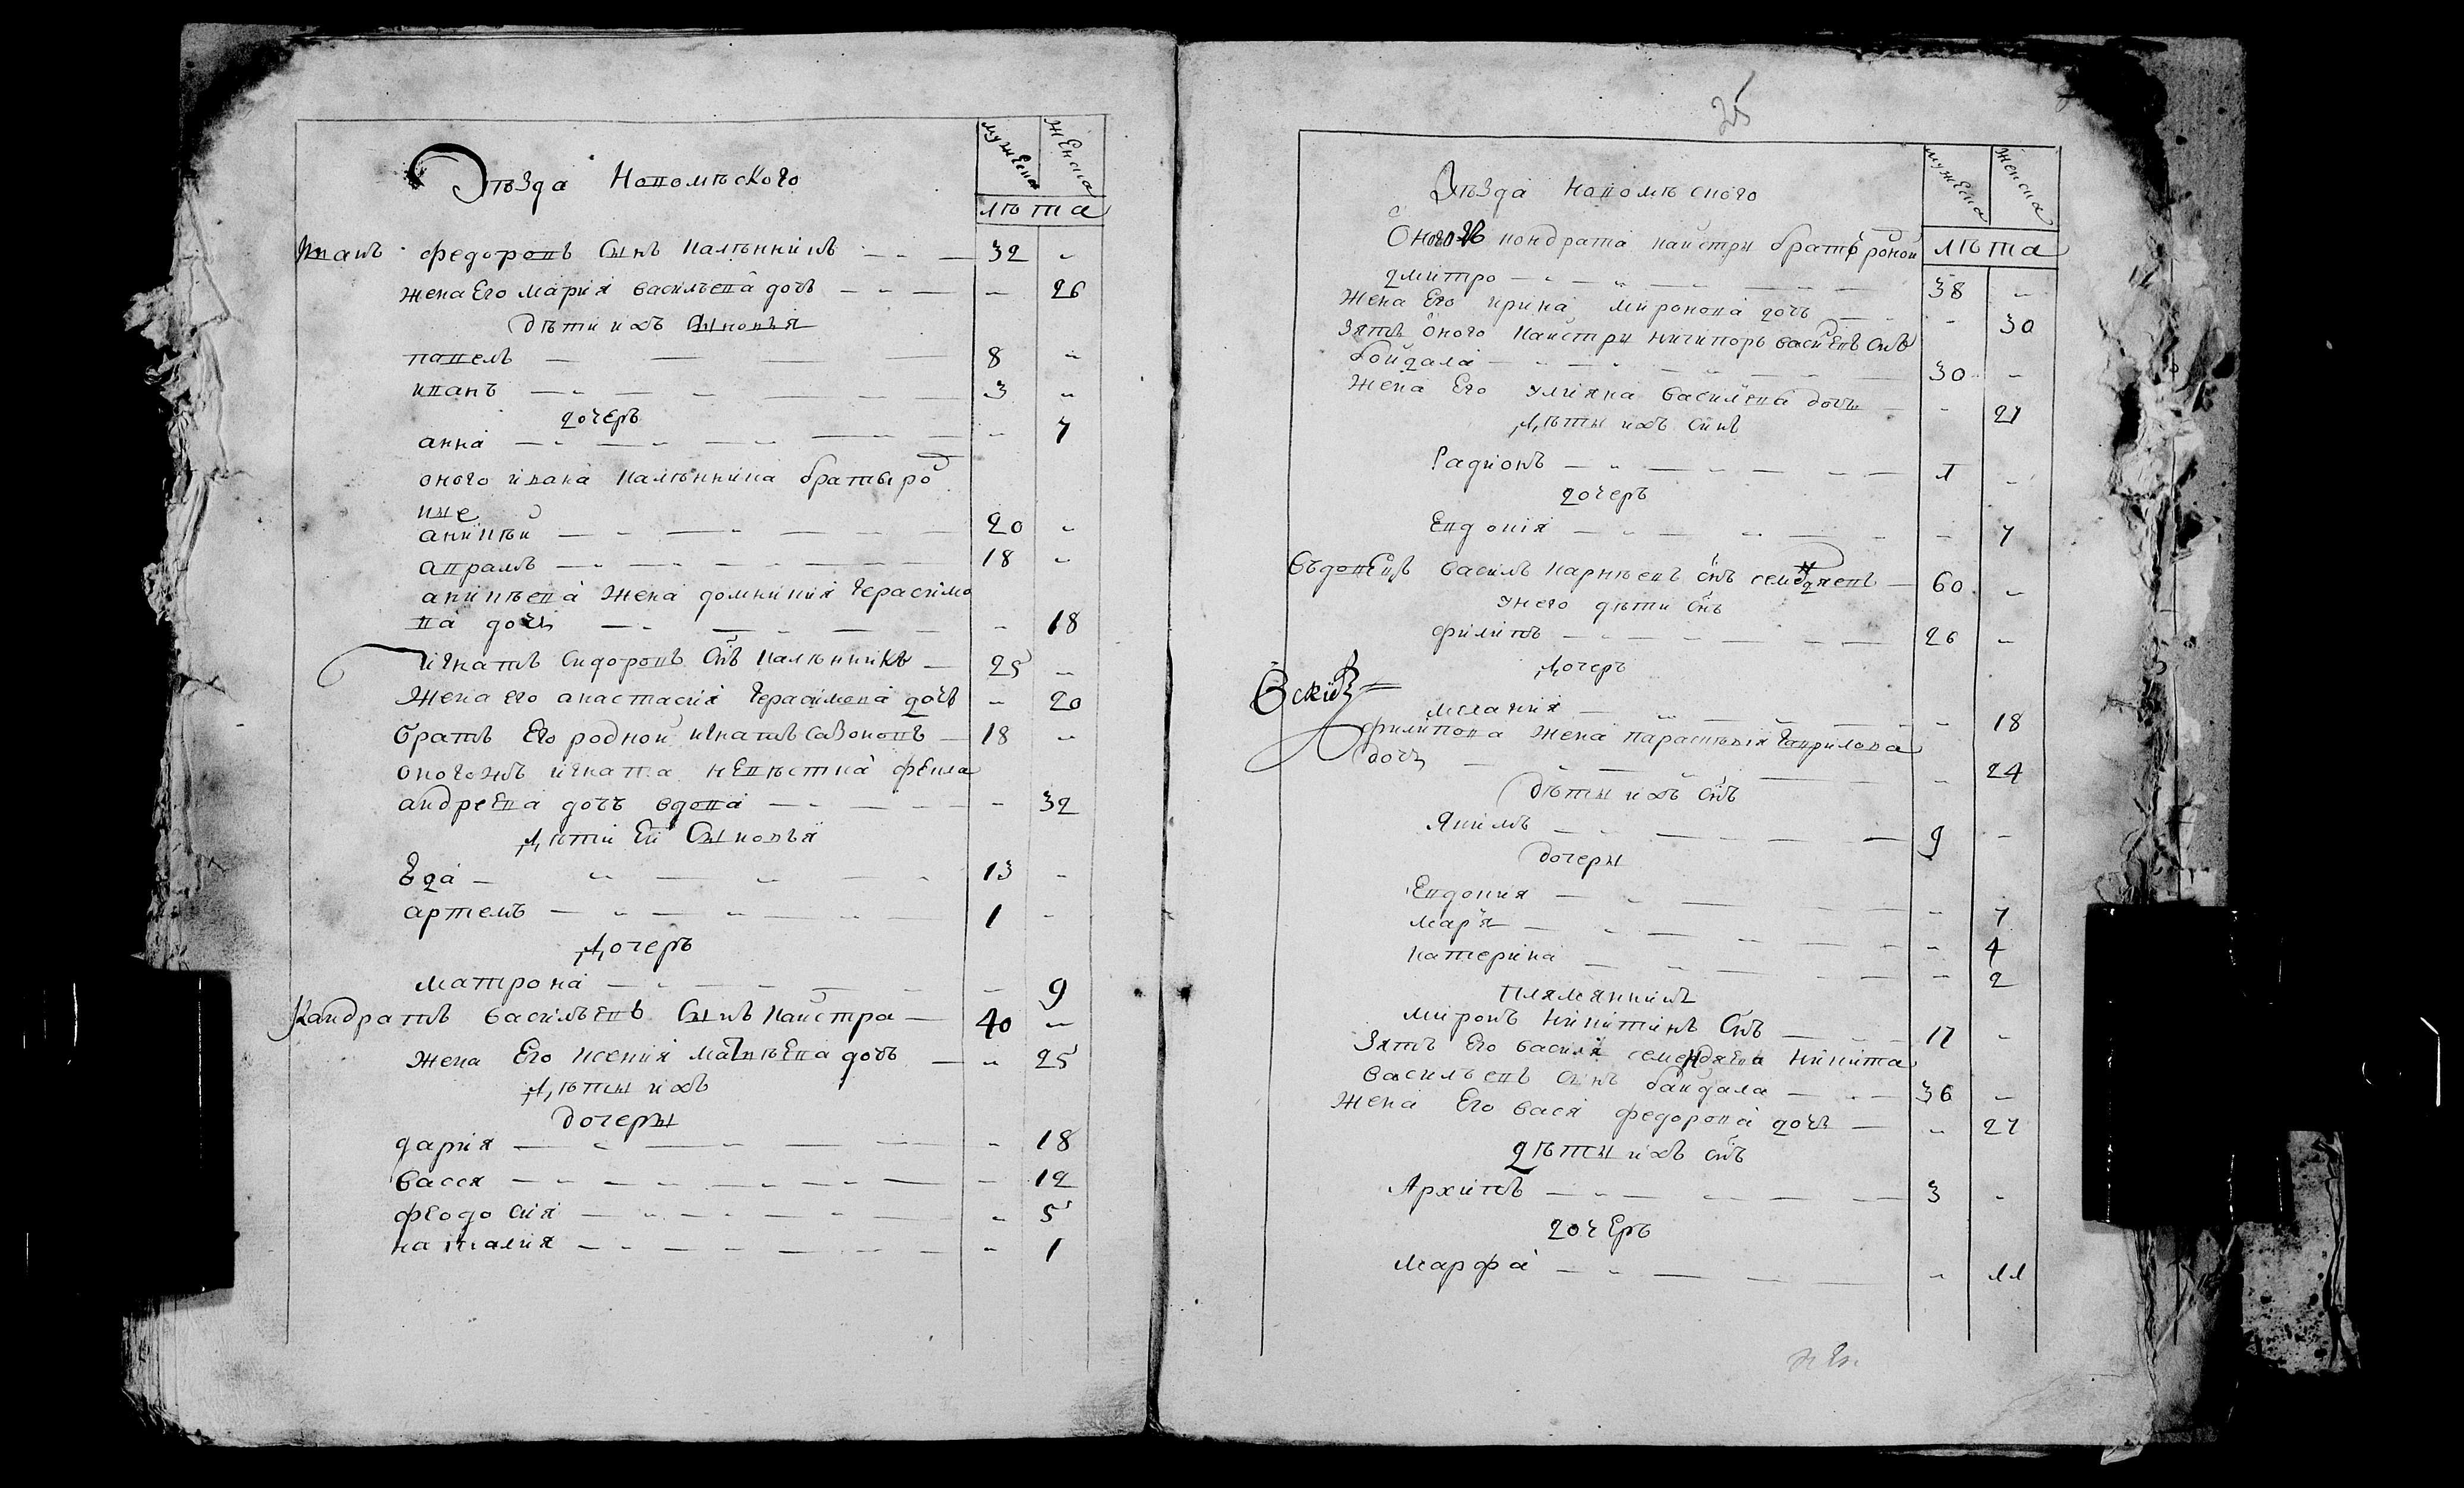 мужеска
женска
Уѣзда Коломѣского
лѣта
Иванъ федоровъ Сынъ Калѣнникъ 32 „
жена Его Мария василъева дочъ „ 26
Дѣти ихъ Сыновъя
павелъ 8 „
иванъ 3 „
дочеръ
анна „ 7
оного ивана Калѣнника братья ро
ние
аникѣй 20 „
аврамъ 18 „
аникѣева жена домникия Герасимо
ва дочъ „ 18
игнатъ Сидоровъ Снъ Калѣнникъ 25 „
Жена его анастасия Герасимова дочъ „ 20
братъ Его родной игнатъ Сазоновъ 18 „
оногожъ игната невѣстка фекла
андреева дочъ вдова „ 32
Дѣти Ей Сыновъя
Ева 13 „
артемъ 1 „
Дочеръ
матрона „ 9
Кандратъ василъевъ Сынъ Каистра 40 „
жена Его ксения матвѣева дочъ „ 25
Дѣти ихъ
дочеры
дария „ 18
васся „ 12
феодосия „ 5
наталия „ 1
25
мужеска
женска
Уѣзда Коломѣского
лѣта
Оногожъ кондрата каистри братъ роной
дмитро 38 „
жена Его ирина миронова дочъ „ 30
зятъ оного каистри ничипоръ васиевъ снъ
бойдала 30 „
жена Его улияна василева дочъ „ 21
Дѣты ихъ синъ
Радионъ 1 „
дочеръ
Евдокия „ 7
въдовецъ василъ карнѣевъ снъ семендяевъ 60 „
унего дѣти снъ
филипъ 26 „
Дочеръ
мелания „ 18
филипова жена парасковия гаврилова
дочъ „ 24
Дѣты ихъ снъ
Якимъ 9 „
дочеры
Евдокия „ 7
маръя „ 4
катерина „ 2
племянникъ
миронъ никитинъ Снъ 17 „
Зятъ Его василя семендяева никита
василъевъ Сынъ байдала 36 „
жена Его вася федорова дочъ „ 27
дѣты ихъ снъ
Архипъ 3 „
дочеръ
марфа „ 11